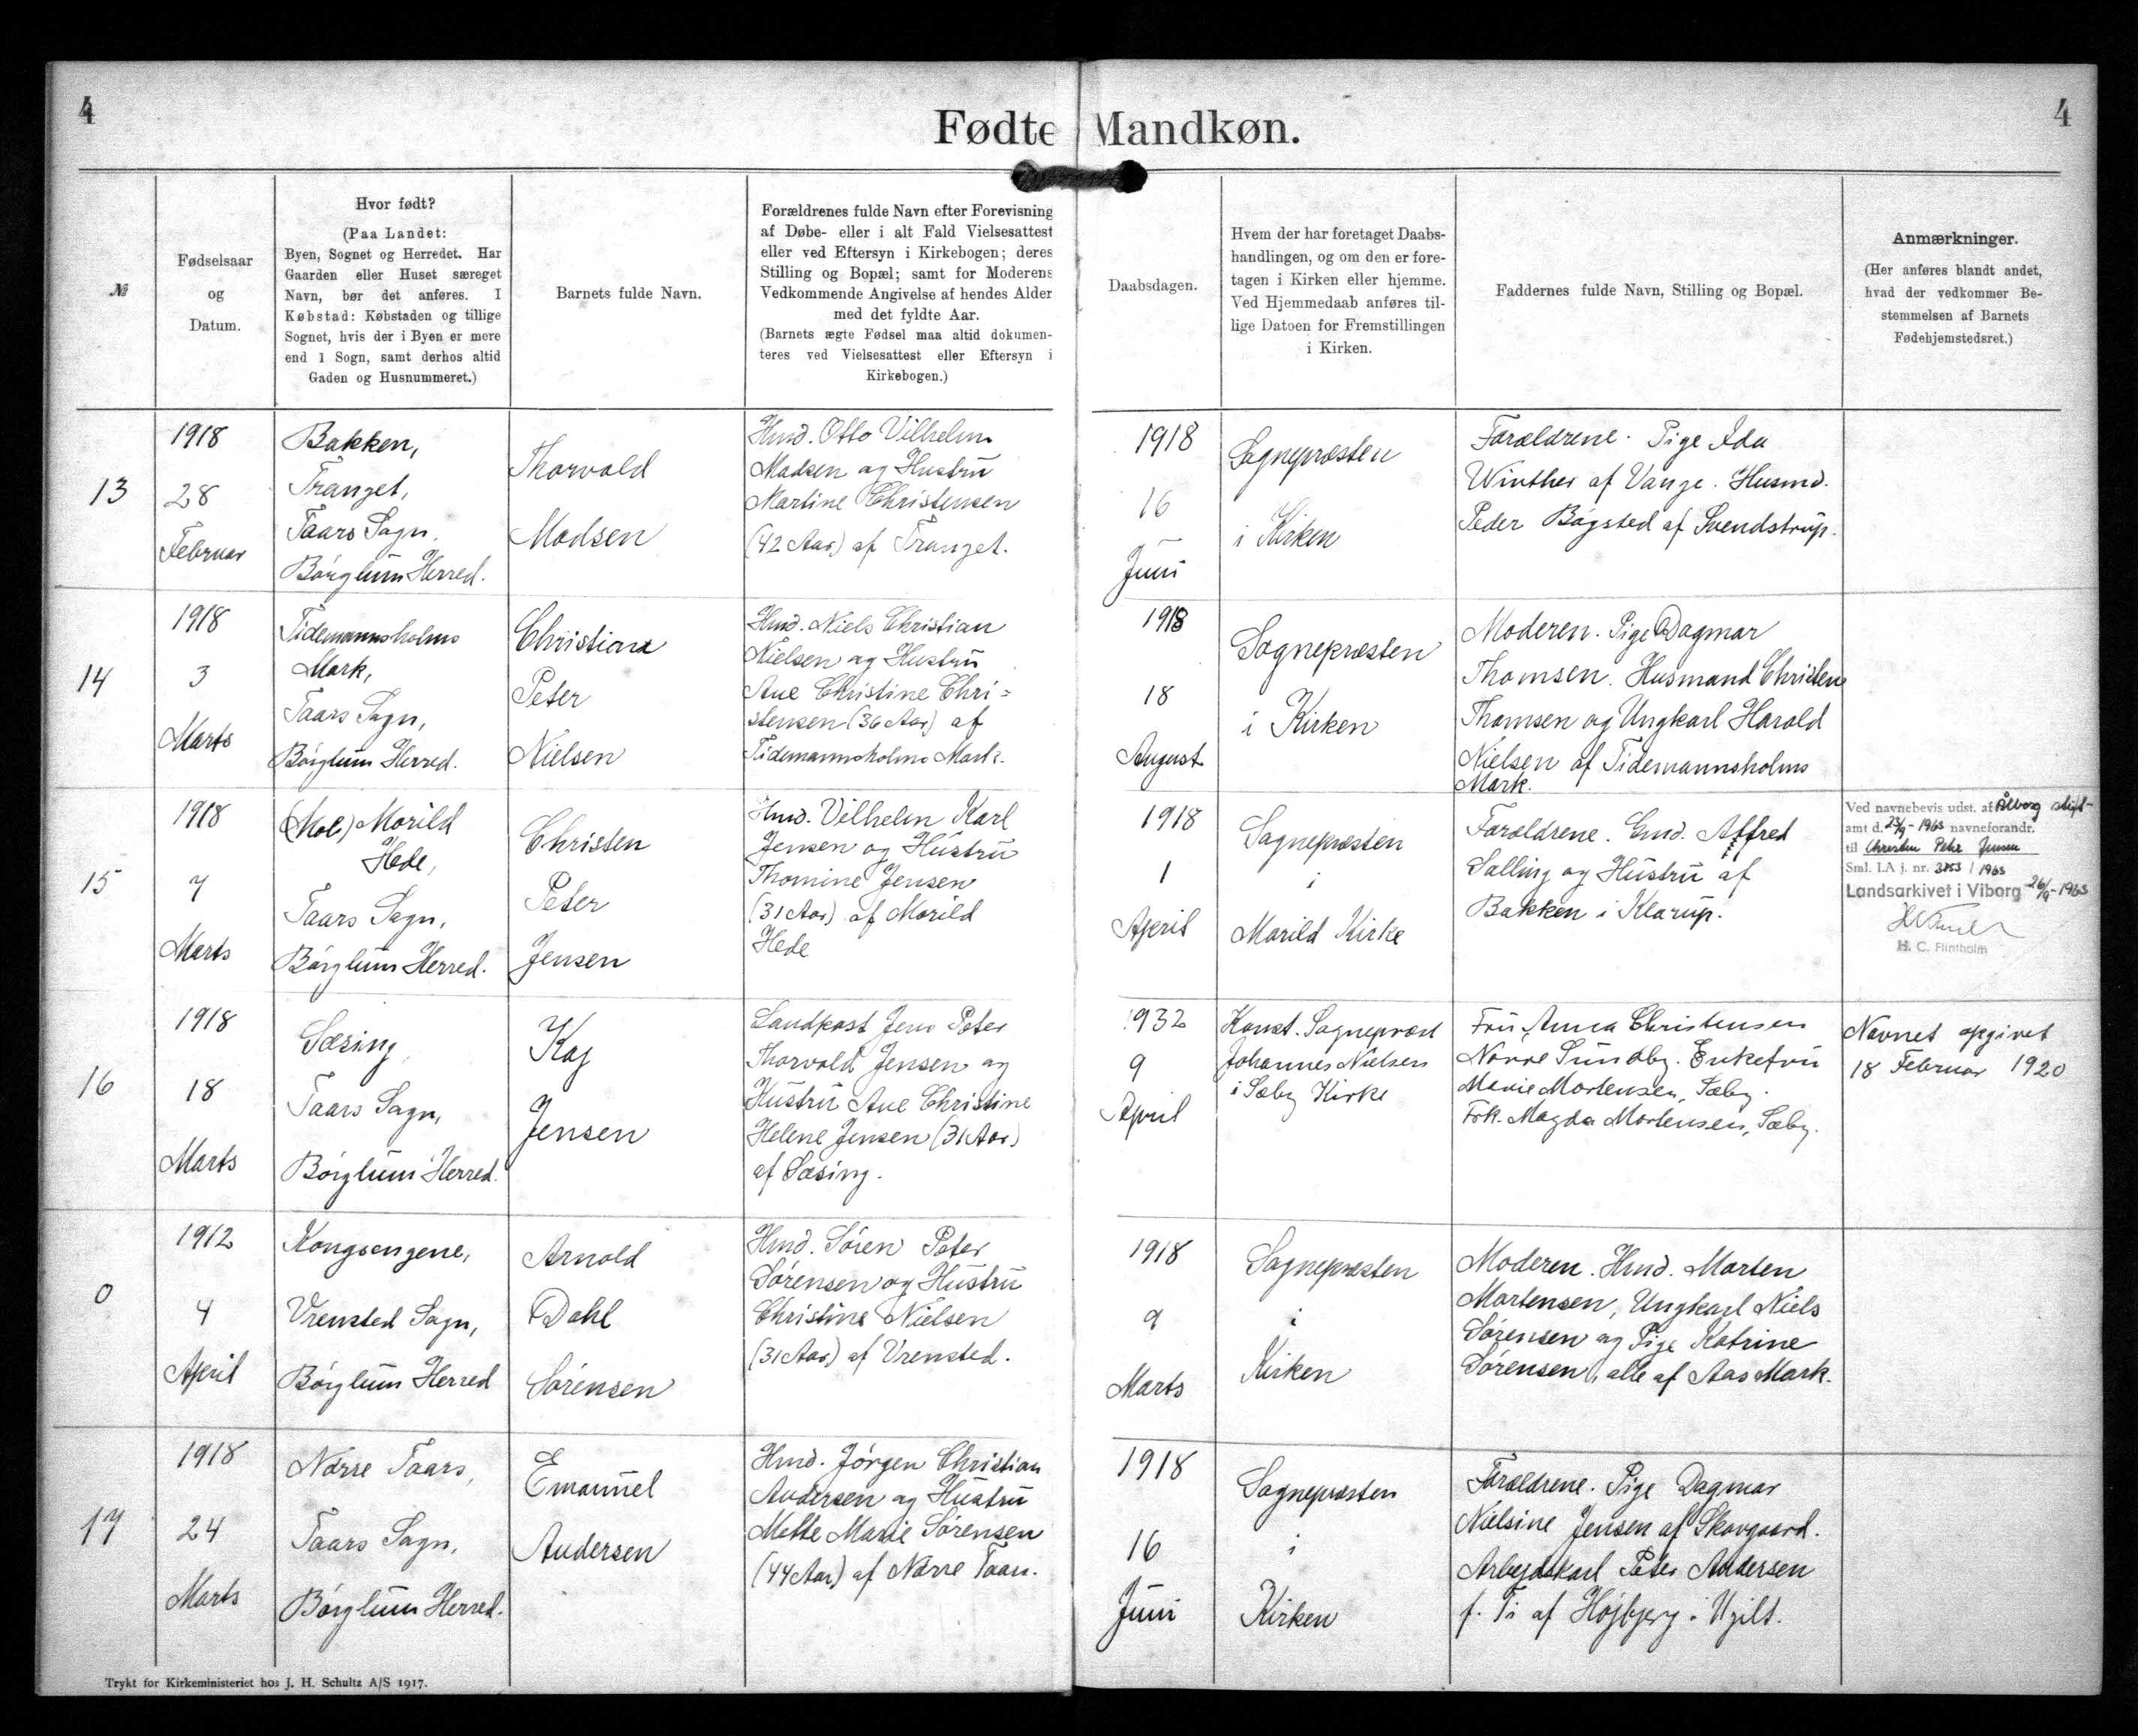 4
Fødte Mandkøn.
4
№
Fødselsaar
og
Datum.
Hvor født?
(Paa Landet:
Byen, Sognet og Herredet. Har
Gaarden eller Huset særeget
Navn, bør det anføres. I
Købstad: Købstaden og tillige
Sognet, hvis der i Byen er mere
end 1 Sogn, samt derhos altid
Gaden og Husnummeret.)
Barnets fulde Navn.
Forældrenes fulde Navn efter Forevisning
af Døbe- eller i alt Fald Vielsesattest
eller ved Eftersyn i Kirkebogen; deres
Stilling og Bopæl; samt for Moderens
Vedkommende Angivelse af hendes Alder
med det fyldte Aar.
(Barnets ægte Fødsel maa altid dokumen-
teres ved Vielsesattest eller Eftersyn i
Kirkebogen.)
Daabsdagen.
Hvem der har foretaget Daabs-
handlingen, og om den er fore-
tagen i Kirken eller hjemme.
Ved Hjemmedaab anføres til-
lige Datoen for Fremstillingen
i Kirken.
Faddernes fulde Navn, Stilling og Bopæl.
Anmærkninger.
(Her anføres blandt andet,
hvad der vedkommer Be-
stemmelsen af Barnets
Fødehjemstedsret.)
13
1918
28
Februar
Bakken,
Tranget,
Taars Sogn,
Børglum Herred.
Thorvald
Madsen
Hmd. Otto Vilhelm
Madsen og Hustru
Martine Christensen
(42 Aar) af Tranget.
1918
16
Juni
Sognepræsten
i Kirken
Forældrene. Pige Ida
Winther af Vange. Husmd.
Peder Bøgsted af Svendstrup.
14
1918
3
Marts
Tidemannsholms
Mark,
Taars Sogn,
Børglum Herred.
Christian
Peter
Nielsen
Hmd. Niels Christian
Nielsen og Hustru
Ane Christine Chri=
stensen (36 Aar) af
Tidemannsholms Mark.
1918
18
August
Sognepræsten
i Kirken
Moderen. Pige Dagmar
Thomsen. Husmand Christen
Thomsen og Ungkarl Harald
Nielsen af Tidemannsholms
Mark.
15
1918
7
Marts
Morild
Hede,
Taars Sogn,
Børglum Herred.
Christen
Peter
Jensen
Hmd. Vilhelm Karl
Jensen og Hustru
Thomine Jensen
(31 Aar) af Morild
Hede
1918
1
April
Sognepræsten
i
Morild Kirke
Forældrene. Gmd. Alfred
Salling og Hustru af
Bakken i Klarup.
Ved navnebevis udst. af Ålborg stift-
amt d. 23/9-1963 navneforandr.
til Christen Peter Jensen
Sml. LA j. nr. 3153 / 1963
Landsarkivet i Viborg 26/9-1963
H. C. Flintholm
16
1918
18
Marts
Sæsing,
Taars Sogn,
Børglum Herred.
Kaj
Jensen
Landpost Jens Peter
Thorvald Jensen og
Hustru Ane Christine
Helene Jensen (31 Aar)
af Sæsing.
1932
9
April
Konst. Sognepræst
Johannes Nielsen
i Sæby Kirke
Fru Anna Christensen
Nørre Sundby. Enkefru
Marie Mortensen, Sæby.
Frk. Magda Mortensen, Sæby.
Navnet opgivet
18 Februar 1920
0
1912
4
April
Kongsengene,
Vrensted Sogn,
Børglum Herred
Arnold
Dahl
Sørensen
Hmd. Søren Peter
Sørensen og Hustru
Christine Nielsen
(31 Aar) af Vrensted.
1918
9
Marts
Sognepræsten
i
Kirken
Moderen. Hmd. Morten
Mortensen, Ungkarl Niels
Sørensen og Pige Katrine
Sørensen, alle af Aas Mark.
17
1918
24
Marts
Nørre Taars,
Taars Sogn,
Børglum Herred.
Emanuel
Andersen
Hmd. Jørgen Christian
Andersen og Hustru
Mette Marie Sørensen
(44 Aar) af Nørre Taars.
1918
16
Juni
Sognepræsten
i
Kirken
Forældrene. Pige Dagmar
Nielsine Jensen af Skovgaard.
Arbejdskarl Peter Andersen
f. Ti af Højbjerg i Ugilt.
Trykt for Kirkeministeriet hos J. H. Schultz A/S 1917.